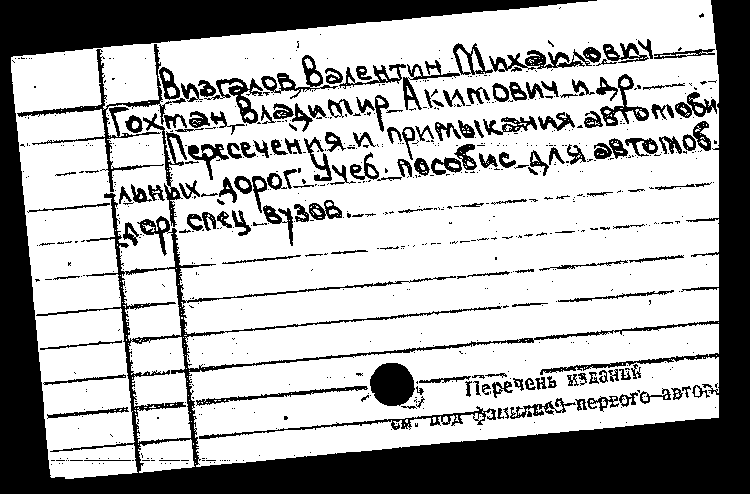 Визгалов, Валентин Михайлович
Гохман, Владимир Акимович и др.
Пересечения и примыкания автомоби-
-льных дорог: Учеб. пособие для автомоб.
дор. спец. вузов.
Перечень изданий
см. под фамилией первого автора